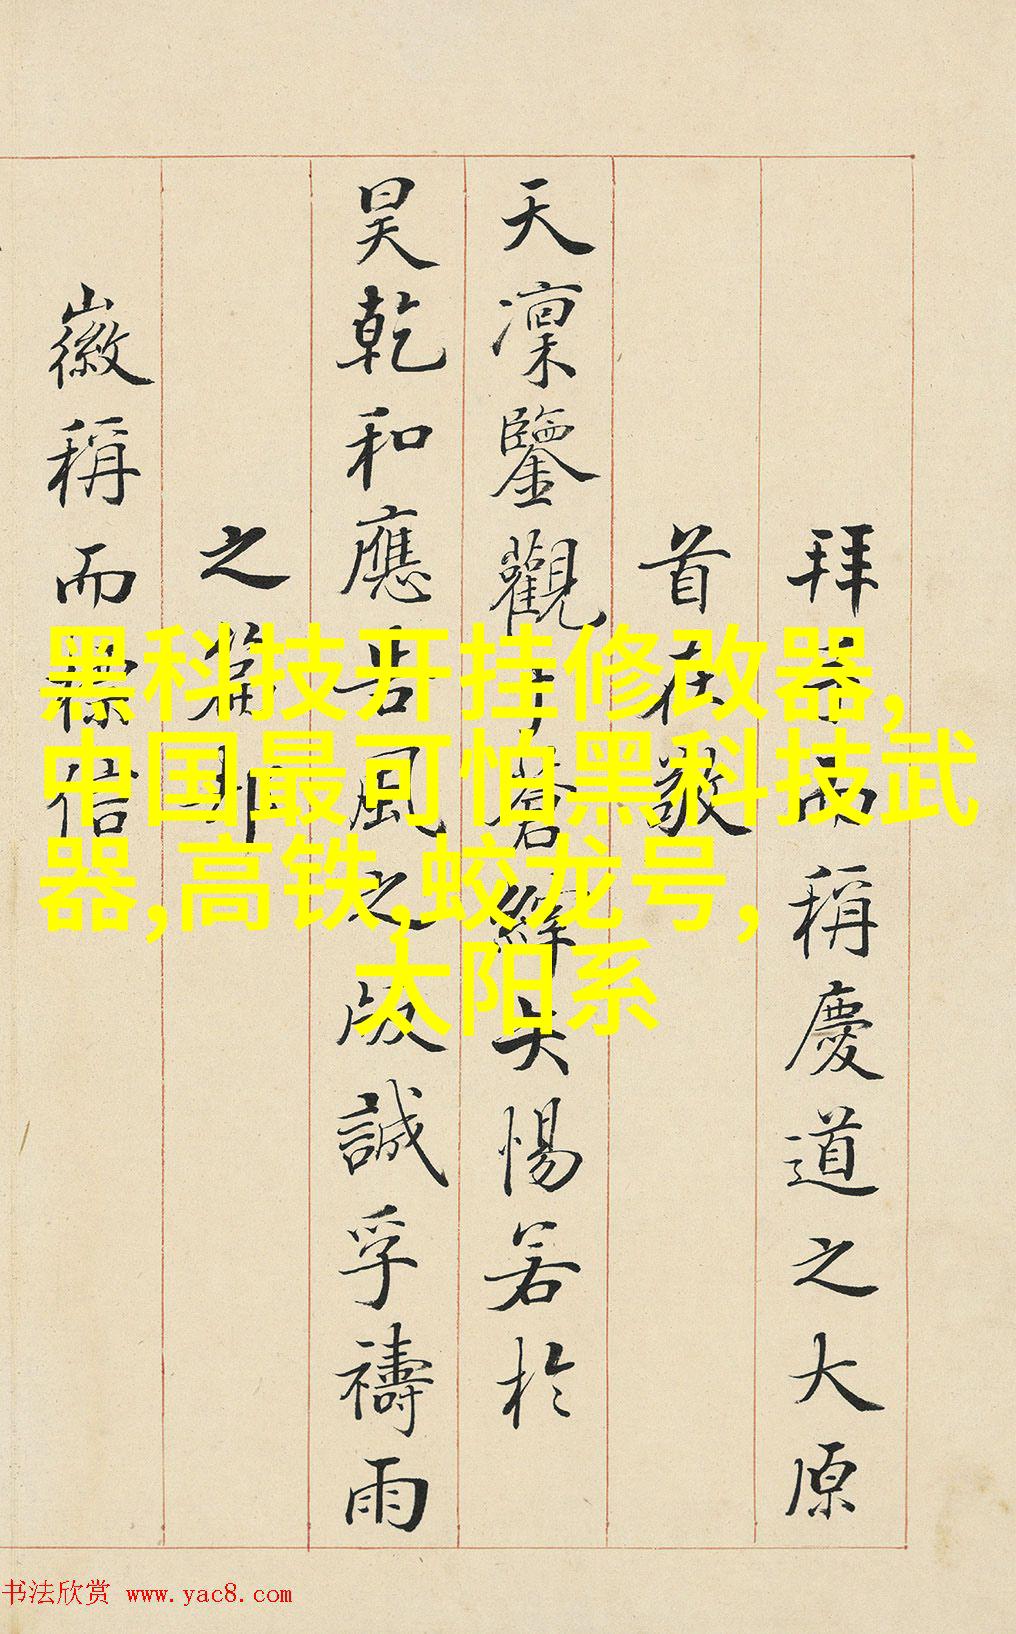 拜稱慶道之大原
首在敬
天凜鑒觀蒼縡惕若於
昊乾和應風之誠孚禱雨
之
徽稱而信
黑科技开挂修改器,
中国最可怕黑科技武
器,高铁,蛟龙号,
太阳系
书法欣赏 www.yac8.com